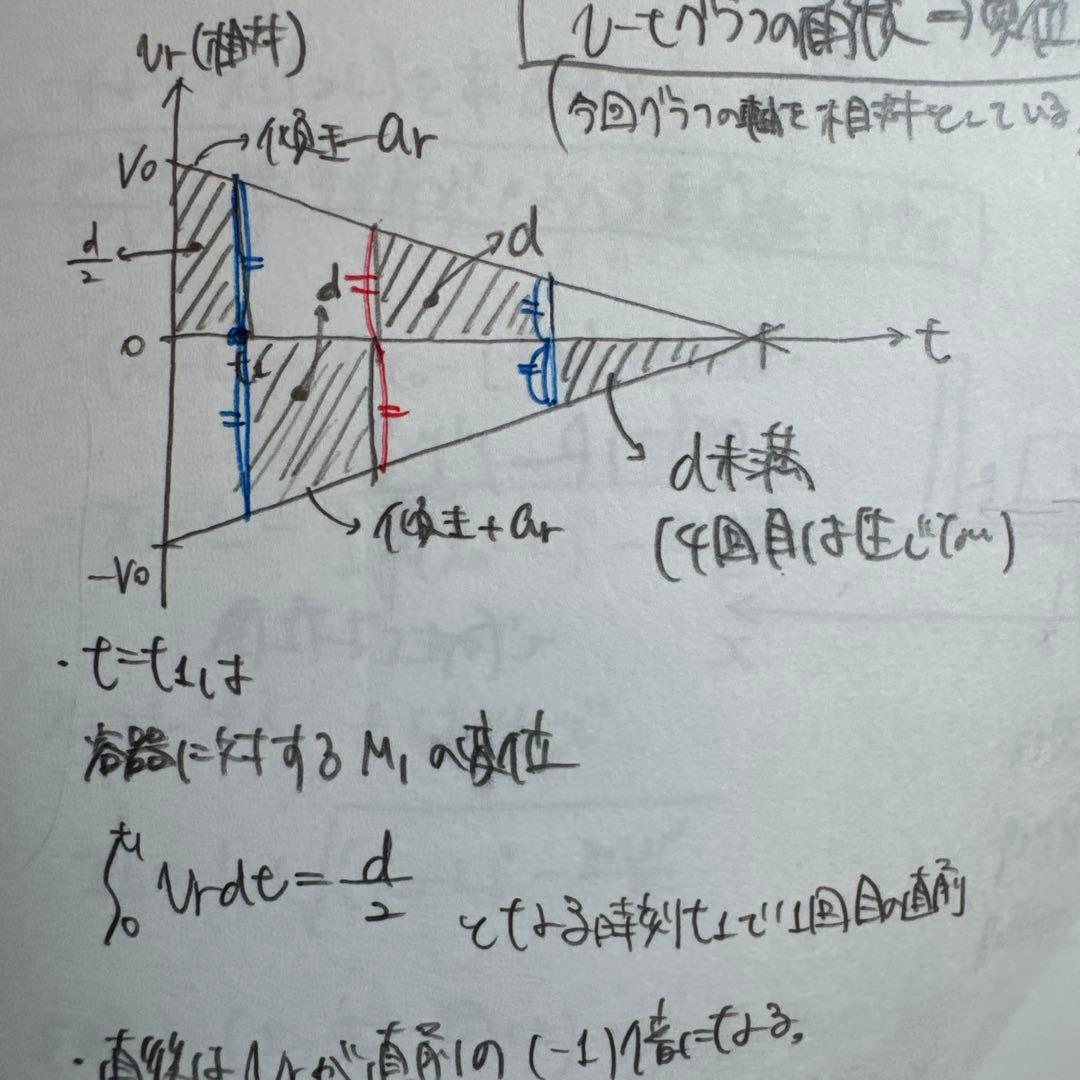 v-tグラフの面積→変位
(今回グラフの軸を相対としている
vr(相対)
傾き-ar
V0
d/2
d
d
0
t1
t
d未満
(4回目は生じない)
傾き+ar
-V0
・t=t1は
容器に対するM1の変位
∫0t1 vrdt=d/2 となる時刻t1で1回目の直前
・直後はvrが直前の(-1)倍になる。